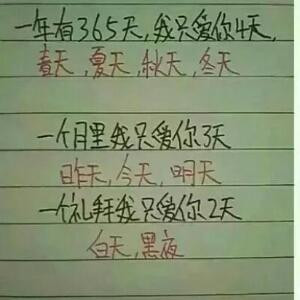 一年有365天,我只爱你4天,
春天,夏天,秋天,冬天
一个月里我只爱你3天
昨天,今天,明天
一个礼拜我只爱你2天
白天,黑夜